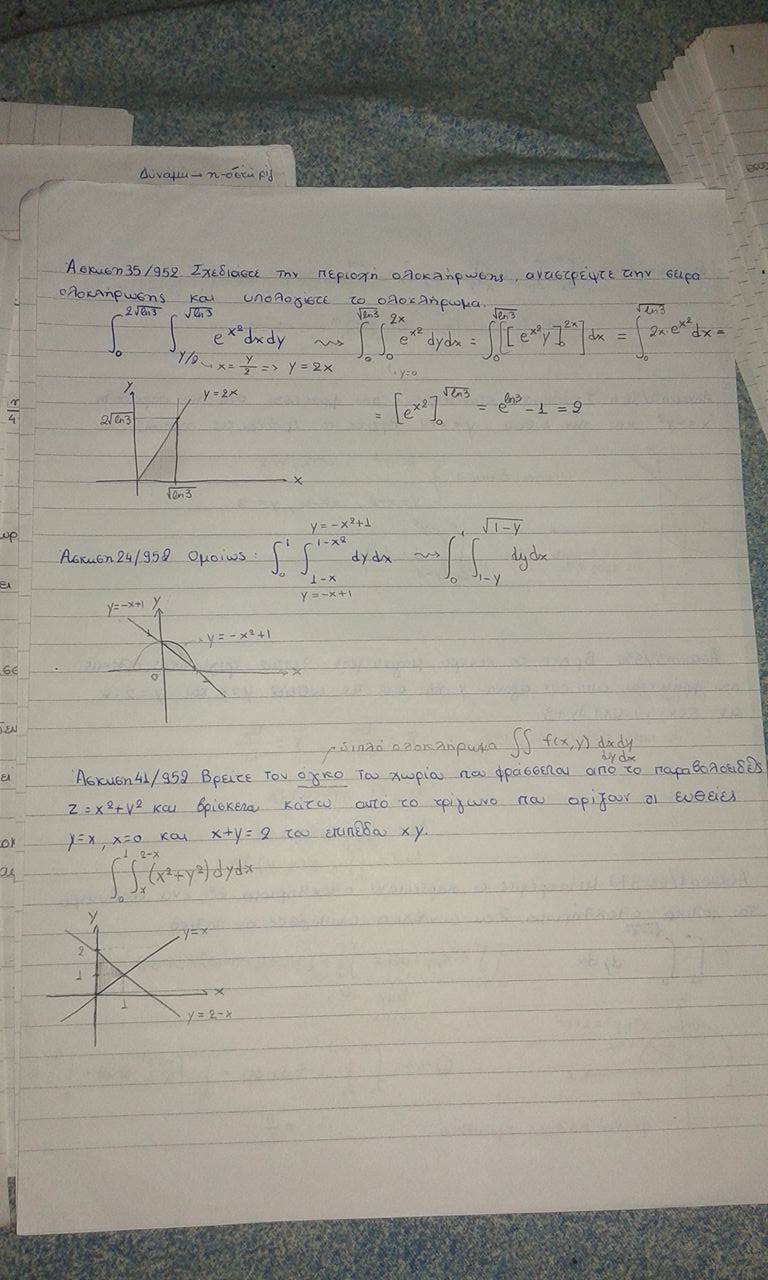 Δυναμη → π-οστή ρίζ
Άσκηση 35/952 Σχεδιάστε την περιοχή ολοκλήρωσης, αναστρέψτε την σειρά
ολοκλήρωσης και υπολογίστε το ολοκλήρωμα.
∫₀^{2√ln3} ∫_{y/2}^{√ln3} e^{x²} dxdy ⇝ ∫₀^{√ln3} ∫₀^{2x} e^{x²} dydx = ∫₀^{√ln3} [[e^{x²}y]₀^{2x}] dx = ∫₀^{√ln3} 2x·e^{x²} dx =
x = y/2 => y = 2x
y=0
= [e^{x²}]₀^{√ln3} = e^{ln3} - 1 = 2
y
y = 2x
2√ln3
x
√ln3
π/4
Άσκηση 24/952 Ομοίως: ∫₀^1 ∫_{1-x}^{1-x²} dydx ⇝ ∫₀^1 ∫_{1-y}^{√1-y} dydx
y = -x²+1
y = -x+1
y=-x+1
y
y = -x²+1
0
x
διπλό ολοκλήρωμα ∫∫ f(x,y) dxdy
dydx
Άσκηση 41/952 Βρείτε τον όγκο του χωρίου που φράσσεται από το παραβολοειδές
z = x²+y² και βρίσκεται κάτω από το τρίγωνο που ορίζουν οι ευθείες
y=x, x=0 και x+y=2 του επιπέδου xy.
∫₀^1 ∫_x^{2-x} (x²+y²) dydx
y
y=x
2
1
x
1
y = 2-x